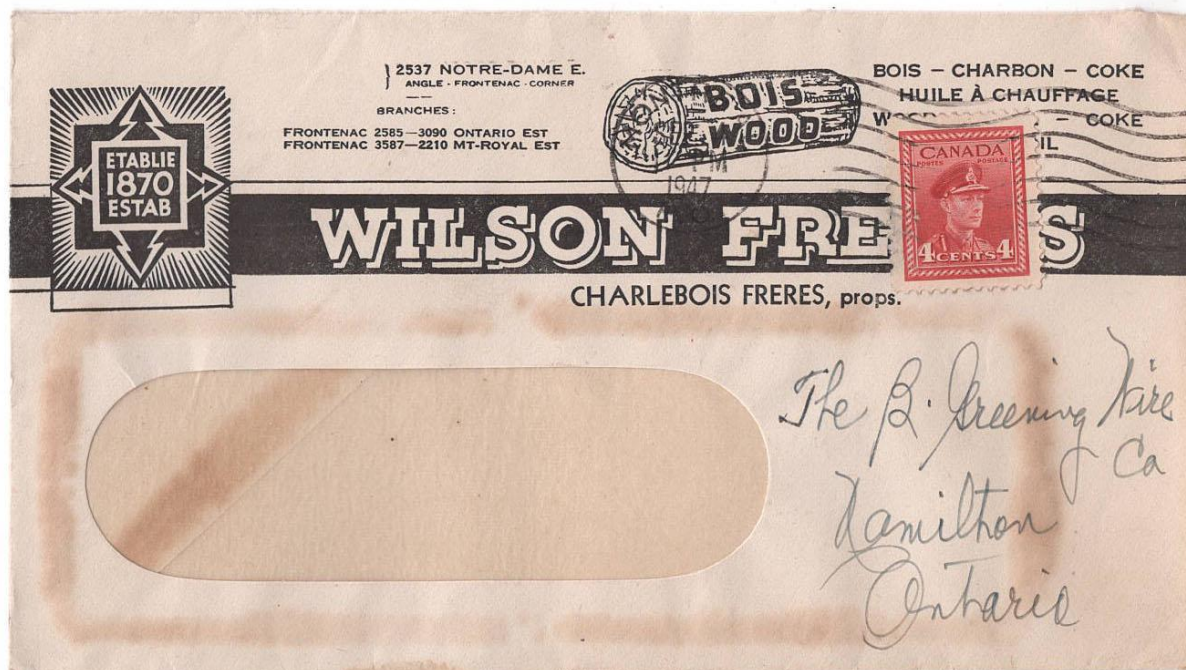 2537 NOTRE-DAME E.
ANGLE - FRONTENAC - CORNER
BRANCHES :
FRONTENAC 2585—3090 ONTARIO EST
FRONTENAC 3587—2210 MT-ROYAL EST
ETABLIE
1870
ESTAB
BOIS
WOOD
PM
1947
BOIS - CHARBON - COKE
HUILE À CHAUFFAGE
- COKE
CANADA
POSTES POSTAGE
4 CENTS 4
WILSON
CHARLEBOIS FRERES, props.
The B. Greening Wire
Co
Hamilton
Ontario